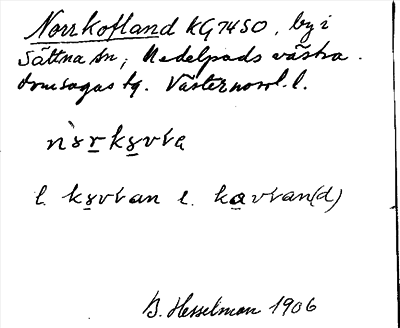 Norrkovland KG7450, by i
Sättna sn, Medelpads västra
domsagas tg. Västernorrl. l.
l. kovlan l. kavlan(d)
B. Hesselman 1906